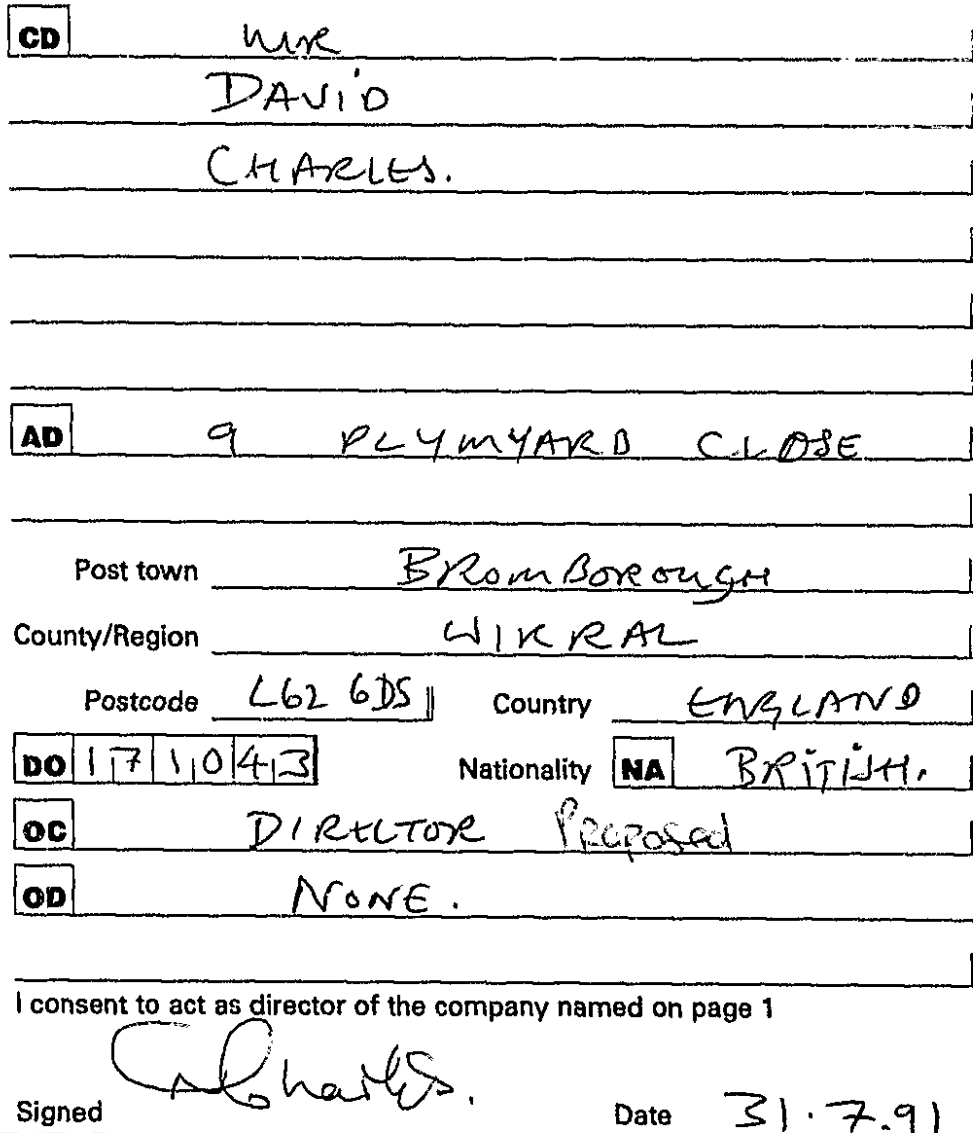 CD MR
DAVID
CHARLES.
AD 9 PLYMYARD CLOSE
Post town BROMBOROUGH
County/Region WIRRAL
Postcode L62 6DS Country ENGLAND
DO 17 10 43 Nationality NA BRITISH.
OC DIRECTOR Proposed
OD NONE.
I consent to act as director of the company named on page 1
Signed D Charles. Date 31.7.91